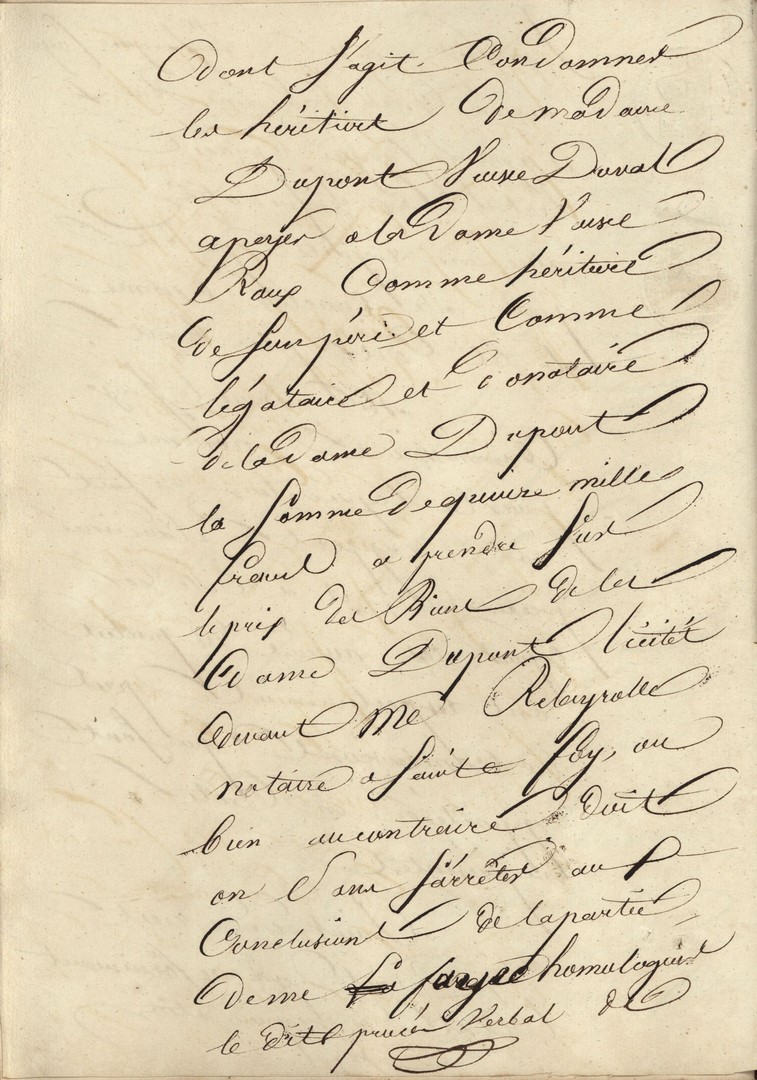 dont s'agit Condamner
les héritiers de madame
Dupont Veuve Duval
a payer a la dame Veuve
Roux Comme héritière
de son père et Comme
légataire et donataire
de la dame Dupont
la Somme de quinze mille
francs a prendre Sur
le prix des Biens de la
dame Dupont licités
devant Me Rebeyrolle
notaire a Sainte foy, ou
bien au contraire doit
on Sans s'arrêter aux
Conclusions de la partie
de me fargue homologuer
le dit procès Verbal de